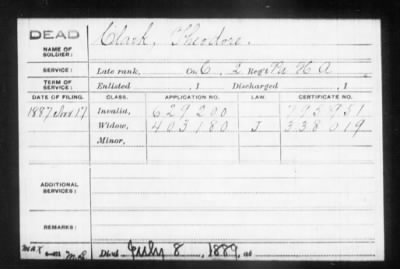 DEAD
NAME OF SOLDIER: Clark, Theodore.
SERVICE: Late rank, Co. C, 2 Reg't Pa H A
TERM OF SERVICE: Enlisted , 1 Discharged , 1
DATE OF FILING. CLASS. APPLICATION NO. LAW. CERTIFICATE NO.
1887 17 Invalid, 629200
Widow, 403180 J 338619
Minor,
ADDITIONAL SERVICES:
REMARKS:
Died July 8, 1889, at